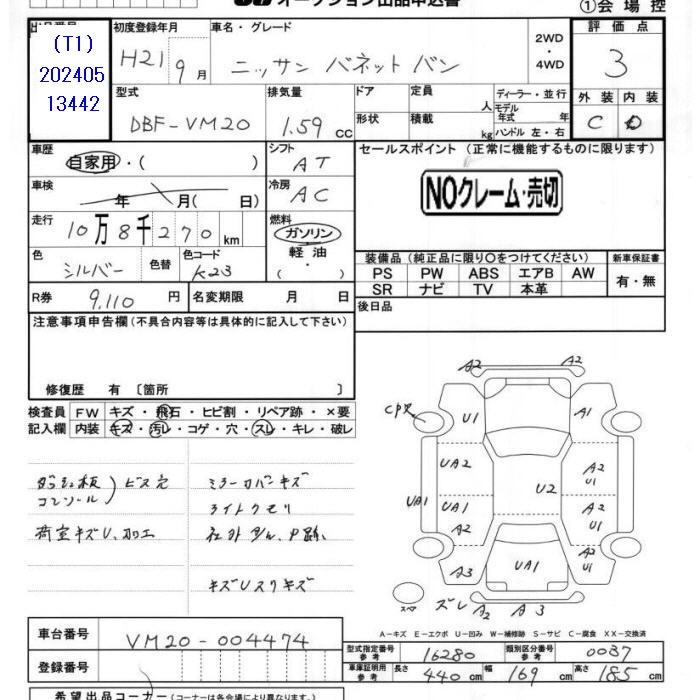 オークション出品申込書
①会場控
出品番号
(T1)
202405
13442
初度登録年月
H21 9月
車名・グレード
ニッサン バネットバン
2WD
・
4WD
評価点
3
外装 内装
C D
型式
DBF-VM20
排気量
1.59 cc
ドア
形状
定員 人
積載 kg
ディーラー・並行
モデル年式 年
ハンドル 左・右
車歴
自家用・( )
シフト
AT
車検
年 月( 日)
冷房
AC
走行
10万8千270km
燃料
ガソリン
軽油
( ・ )
色
シルバー
色替
色コード
K23
R券 9,110 円
名変期限 月 日
セールスポイント(正常に機能するものに限ります)
NOクレーム・売切
装備品(純正品に限り○をつけてください)
PS PW ABS エアB AW
SR ナビ TV 本革
新車保証書
有・無
後日品
注意事項申告欄(不具合内容等は具体的に記入して下さい)
修復歴 有 〔箇所 〕
検査員 FW キズ・飛石・ヒビ割・リペア跡・×要
記入欄 内装 キズ・汚レ・コゲ・穴・スレ・キレ・破レ
コンソール ビス穴
荷室キズU、加工
ミラーカバーキズ
ライトクモリ
キズUスリキズ
A2 A2
U1 A1
UA2 A2 U1
UA1 U2
UA1 A2 U1
A2 A2 U1
A3 UA1
スペア ズレ A2 A3
A-キズ E-エクボ U-凹み W-補修跡 S-サビ C-腐食 XX-交換済
車台番号 VM20-004474
登録番号
型式指定番号参考 16280 類別区分番号参考 0037
車庫証明用参考 長さ 440cm 幅 169cm 高さ 185cm
希望出品コーナー(コーナーは各会場により異なります)